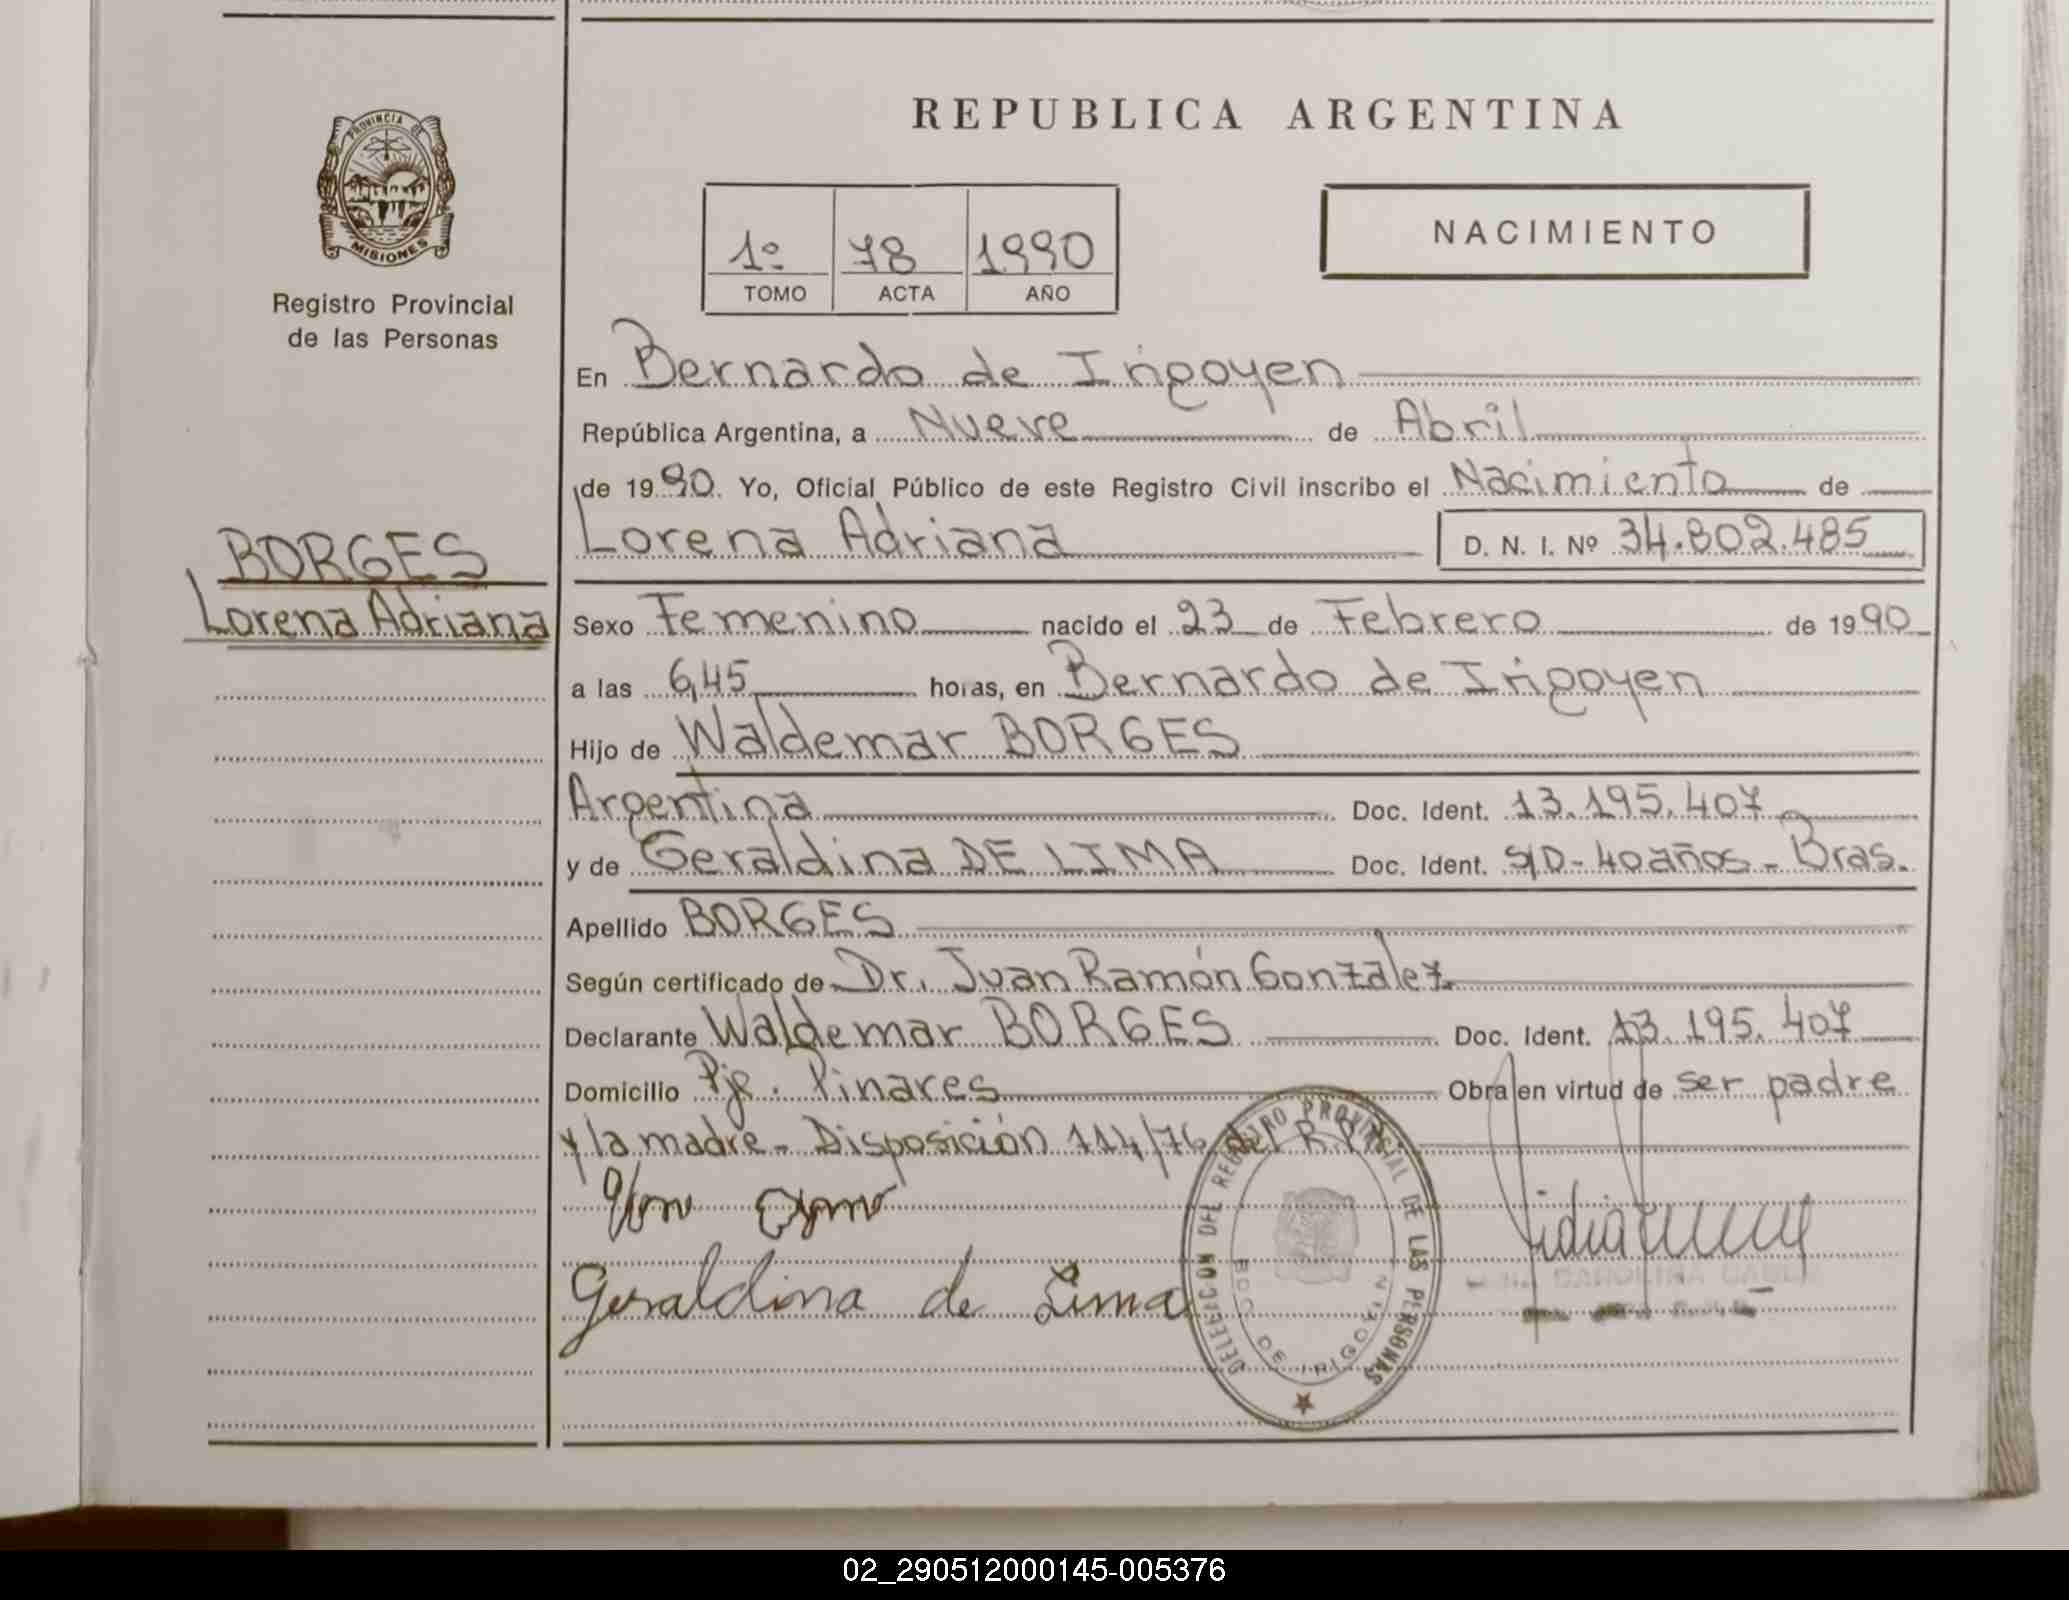 REPUBLICA ARGENTINA
PROVINCIA DE
MISIONES
Registro Provincial
de las Personas
1º 78 1990
TOMO ACTA AÑO
NACIMIENTO
En Bernardo de Irigoyen
República Argentina, a Nueve de Abril
de 1990. Yo, Oficial Público de este Registro Civil inscribo el Nacimiento de
Lorena Adriana D. N. I. Nº 34.802.485
BORGES
Lorena Adriana
Sexo Femenino nacido el 23 de Febrero de 1990
a las 6,45 horas, en Bernardo de Irigoyen
Hijo de Waldemar BORGES
Argentina Doc. Ident. 13.195.407
y de Geraldina DE LIMA Doc. Ident. S/D-40 años-Bras.
Apellido BORGES
Según certificado de Dr. Juan Ramón Gonzalez
Declarante Waldemar BORGES Doc. Ident. 13.195.407
Domicilio Pje. Pinares Obra en virtud de ser padre
y la madre- Disposición 114/76 del R.
Geraldina de Lima
DELEGACION DEL REGISTRO PROVINCIAL DE LAS PERSONAS
BDO. DE IRIGOYEN
CAROLINA
02_290512000145-005376